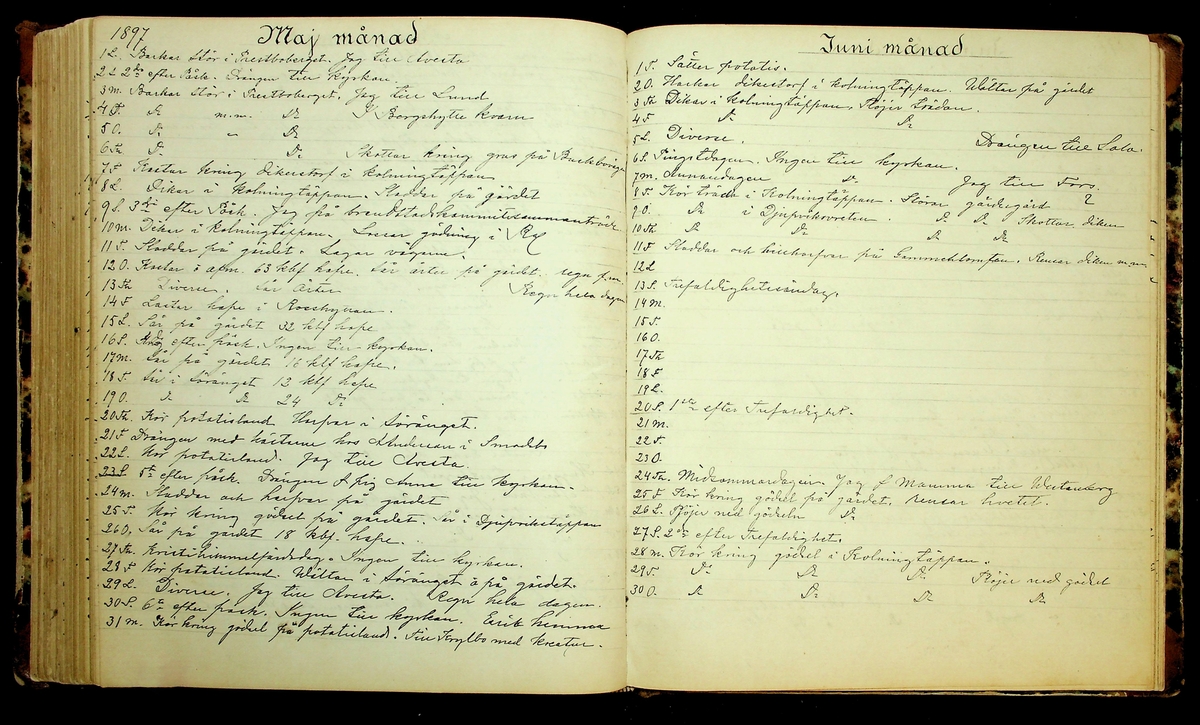 1897
Maj månad
1 L. Barkar stör i Trestboberget. Jag till Avesta
2 S 2dra efter Påsk. Drängen till kyrkan.
3 M. Barkar stör i Trestboberget. Jag till Lund
4 T. Do m.m. Do I Borgshytte kvarn
5 O. Do " Do
6 Th Do Do Skottar kring grus på
7 F Kastar kring dikestorf i kolningtäppan
8 L. Dikar i kolningtäppan. Sladdar på gärdet
9 S. 3dje efter Påsk. Jag på brandstodskommitésammanträde
10 M. Dikar i kolningtäppan. gödning i
11 T. Sladdar på gärdet. Lagar vägarne.
12 O. Kastar i 63 kbf hafre. Sår ärter på gärdet. regn f.m.
13 Th Diverse. Sår ärter Regn hela dagen
14 F Lastar hafre i
15 L. Sår på gärdet 32 kbf hafre
16 S. efter påsk. Ingen till kyrkan.
17 M. Sår på gärdet 16 kbf hafre.
18 T. Sår i Söränget 12 kbf hafre
19 O. Do Do 24 Do
20 Th. Kör potatisland Harfvar i Söränget.
21 F Drängen med hästarne hos Anderson i Smedsbo
22 L. Kör potatisland. Jag till Avesta.
23 S. 5te efter påsk. Drängen & pig Anna till kyrkan.
24 M. Sladdar och harfvar på gärdet
25 T. Kör kring gödsel på gärdet. Sår i Djuprikstäppan
26 O. Sår på gärdet 18 kbf. hafre.
27 Th. Kristi himmelfärdsdag. Ingen till kyrkan.
28 F Kör potatisland. Wältar i Söränget o på gärdet.
29 L. Diverse. Jag till Avesta. Regn hela dagen.
30 S. 6te efter påsk. Ingen till kyrkan. Erik hemma
31 M. Kör kring gödsel på potatisland. Till Krylbo med kreatur.
Juni månad
1 T. Sätter potatis.
2 O. Harkar dikestorf i kolningtäppan. Wältar på gärdet
3 Th Dikar i kolningtäppan. Plöjer trädan.
4 F Do Do
5 L. Diverse. Drängen till Sala.
6 S. Pingstdagen. Ingen till kyrkan.
7 M. Annandagen Do Jag till Fors.
8 T. Kör träda i Kolningtäppan. Störar gärdesgård
9 O. Do i Djupviksvreten. Do Do Skottar diken
10 Th Do Do Do Do
11 F Sladdar och harfvar på Gammeltomten. Rensar diken m.m.
12 L
13 S. Trefaldighetssöndag.
14 M.
15 T.
16 O.
17 Th
18 F
19 L.
20 S. 1sta efter Trefaldighet.
21 M.
22 T.
23 O.
24 Th. Midsommardagen. Jag & Mamma till Westanberg
25 F Kör kring gödsel på gärdet. rensar hvetet.
26 L. Plöjer ned gödseln Do
27 S. 2dra efter Trefaldighet.
28 M. Kör kring gödsel i Kolningtäppan.
29 T. Do Do Do Plöjer ned gödsel
30 O. Do Do Do Do